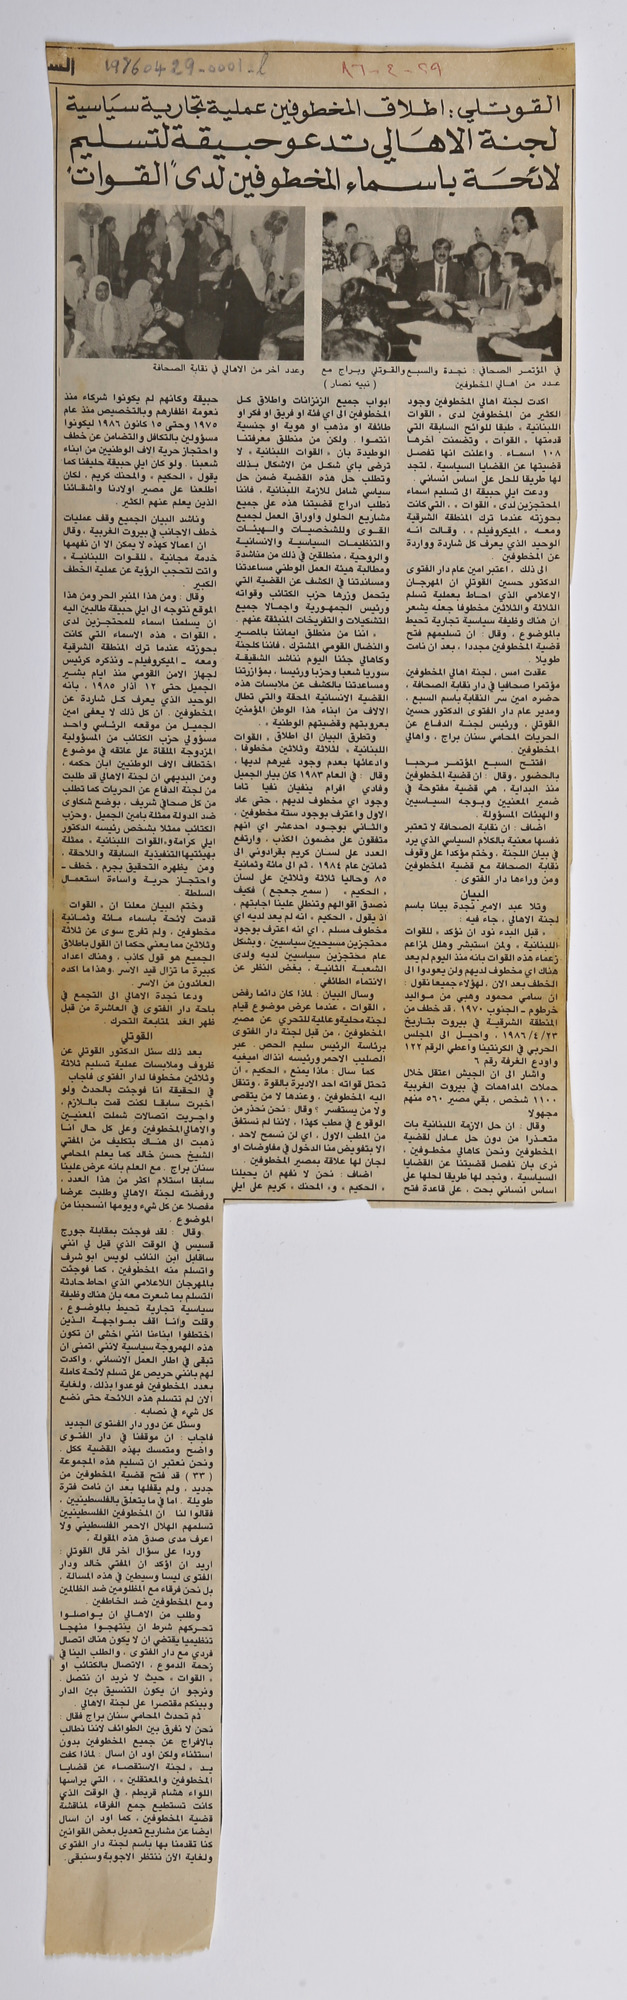 السـ
19860429-0001-L
٢٩-٤-٨٦
القوتلي: اطلاق المخطوفين عملية تجارية سياسية
لجنة الاهالي تدعو حبيقة لتسليم
لائحة باسماء المخطوفين لدى "القوات"
في المؤتمر الصحافي : نجدة والسبع والقوتلي وبراج مع
عدد من اهالي المخطوفين
( نبيه نصار )
وعدد آخر من الاهالي في نقابة الصحافة
اكدت لجنة اهالي المخطوفين وجود
الكثير من المخطوفين لدى « القوات
اللبنانية » طبقا للوائح السابقة التي
قدمتها « القوات » وتضمنت آخرها
١٠٨ اسماء . واعلنت انها تفصل
قضيتها عن القضايا السياسية ، لتجد
لها طريقا للحل على اساس انساني .
ودعت ايلي حبيقة الى تسليم اسماء
المحتجزين لدى « القوات » ، التي كانت
بحوزته عندما ترك المنطقة الشرقية
ومعه « الميكروفيلم » ، وقالت انه
الوحيد الذي يعرف كل شاردة وواردة
عن المخطوفين .
الى ذلك ، اعتبر امين عام دار الفتوى
الدكتور حسين القوتلي ان المهرجان
الاعلامي الذي احاط بعملية تسلم
الثلاثة والثلاثين مخطوفا جعله يشعر
ان هناك وظيفة سياسية تجارية تحيط
بالموضوع ، وقال : ان تسليمهم فتح
قضية المخطوفين مجددا ، بعد ان نامت
طويلا .
عقدت امس ، لجنة اهالي المخطوفين
مؤتمرا صحافيا في دار نقابة الصحافة ،
حضره امين سر النقابة باسم السبع ،
ومدير عام دار الفتوى الدكتور حسين
القوتلي ، ورئيس لجنة الدفاع عن
الحريات المحامي سنان براج ، واهالي
المخطوفين .
افتتح السبع المؤتمر مرحبا
بالحضور ، وقال : ان قضية المخطوفين
منذ البداية ، هي قضية مفتوحة في
ضمير المعنيين وبوجه السياسيين
والهيئات المسؤولة .
اضاف : ان نقابة الصحافة لا تعتبر
نفسها معنية بالكلام السياسي الذي يرد
في بيان اللجنة ، وختم مؤكدا على وقوف
نقابة الصحافة مع قضية المخطوفين
ومن وراءها دار الفتوى .
البيان
وتلا عبد الامير نجدة بيانا باسم
لجنة الاهالي ، جاء فيه :
« قبل البدء نود ان نؤكد « للقوات
اللبنانية » ولمن استبشر وهلل لمزاعم
زعماء هذه القوات بانه منذ اليوم لم يعد
هناك اي مخطوف لديهم ولن يعودوا الى
الخطف بعد الآن ، لهؤلاء جميعا نقول :
ان سامي محمود وهبي من مواليد
خرطوم - الجنوب ١٩٧٠ ، قد خطف من
المنطقة الشرقية في بيروت بتاريخ
١٩٨٦/٤/٢٣ ، واحيل الى المجلس
الحربي في الكرنتينا واعطي الرقم ١٢٢
واودع الغرفة رقم ٦
واشار الى ان الجيش اعتقل خلال
حملات المداهمات في بيروت الغربية
١١٠٠ شخص ، بقي مصير ٥٦٠ منهم
مجهولا
وقال : ان حل الازمة اللبنانية بات
متعذرا من دون حل عادل لقضية
المخطوفين ونحن كاهالي مخطوفين ،
نرى بان نفصل قضيتنا عن القضايا
السياسية ، ونجد لها طريقا لحلها على
اساس انساني بحت ، على قاعدة فتح
ابواب جميع الزنزانات واطلاق كل
المخطوفين الى اي فئة او فريق او فكر او
طائفة او مذهب او هوية او جنسية
انتموا . ولكن من منطلق معرفتنا
الوطيدة بان « القوات اللبنانية » لا
ترضى باي شكل من الاشكال بذلك
وتطلب حل هذه القضية ضمن حل
سياسي شامل للازمة اللبنانية ، فاننا
نطلب ادراج قضيتنا هذه على جميع
مشاريع الحلول واوراق العمل لجميع
القوى وللشخصيات والهيئات
والتنظيمات السياسية والانسانية
والروحية ، منطلقين في ذلك من مناشدة
ومطالبة هيئة العمل الوطني مساعدتنا
ومساندتنا في الكشف عن القضية التي
يتحمل وزرها حزب الكتائب وقواته
ورئيس الجمهورية واجمالا جميع
التشكيلات والتفريخات المنبثقة عنهم .
« اننا من منطلق ايماننا بالمصير
والنضال القومي المشترك ، فاننا كلجنة
وكاهالي جئنا اليوم نناشد الشقيقة
سوريا شعبا وحزبا ورئيسا ، بمؤازرتنا
ومساعدتنا بالكشف عن ملابسات هذه
القضية الانسانية المحقة والتي تطال
الآلاف من ابناء هذا الوطن المؤمنين
بعروبتهم وقضيتهم الوطنية » .
وتطرق البيان الى اطلاق « القوات
اللبنانية » لثلاثة وثلاثين مخطوفا ،
وادعائها بعدم وجود غيرهم لديها ،
وقال : في العام ١٩٨٣ كان بيار الجميل
وفادي افرام ينفيان نفيا تاما
وجود اي مخطوف لديهم ، حتى عاد
الاول واعترف بوجود ستة مخطوفين ،
والثاني بوجود احدعشر اي انهم
متفقون على مضمون الكذب ، وارتفع
العدد على لسان كريم بقرادوني الى
ثمانين عام ١٩٨٤ ، ثم الى مائة وثمانية
٨٥ وحاليا ثلاثة وثلاثين على لسان
« الحكيم » ( سمير جعجع ) فكيف
نصدق اقوالهم وتنطلي علينا اجابتهم ،
اذ يقول « الحكيم » انه لم يعد لديه اي
مخطوف مسلم ، اي انه اعترف بوجود
محتجزين مسيحيين سياسيين ، وبشكل
عام محتجزين سياسيين لديه ولدى
الشعبة الثانية ، بغض النظر عن
الانتماء الطائفي .
وسأل البيان : لماذا كان دائما رفض
« القوات » عندما عرض موضوع قيام
لجنة محلية وعالمية للتحري عن مصير
المخطوفين ، من قبل لجنة دار الفتوى
برئاسة الرئيس سليم الحص . عبر
الصليب الاحمر ورئيسه انذاك
كما سأل : ماذا يمنع « الحكيم » ان
تحتل قواته احد الاديرة بالقوة ، وتنقل
اليه المخطوفين ، وعندها لا من يتقصى
ولا من يستفسر ؟ وقال : نحن نحذر من
الوقوع في مطب كهذا ، لاننا لم نستفق
من المطب الاول ، اي لن نسمح لاحد ،
الا بتفويض منا الدخول في مفاوضات او
لجان لها علاقة بمصير المخطوفين .
اضاف : نحن لا نفهم ان يحيلنا
« الحكيم » و« المحنك » كريم على ايلي
حبيقة وكأنهم لم يكونوا شركاء منذ
نعومة اظفارهم وبالتخصيص منذ عام
١٩٧٥ وحتى ١٥ كانون ١٩٨٦ ليكونوا
مسؤولين بالتكافل والتضامن عن خطف
واحتجاز حرية آلاف الوطنيين من ابناء
شعبنا . ولو كان ايلي حبيقة حليفنا كما
يقول « الحكيم » والمحنك كريم ، لكان
اطلعنا على مصير اولادنا واشقائنا
الذين يعلم عنهم الكثير .
وناشد البيان الجميع وقف عمليات
خطف الاجانب في بيروت الغربية ، وقال
ان اعمالا كهذه لا يمكن الا ان نفهمها
خدمة مجانية « للقوات اللبنانية »
واتت لتحجب الرؤية عن عملية الخطف
الكبير .
وقال : ومن هذا المنبر الحر ومن هذا
الموقع نتوجه الى ايلي حبيقة طالبين اليه
ان يسلمنا اسماء للمحتجزين لدى
« القوات » هذه الاسماء التي كانت
بحوزته عندما ترك المنطقة الشرقية
ومعه - الميكروفيلم - ونذكره كرئيس
لجهاز الامن القومي منذ ايام بشير
الجميل حتى ١٢ آذار ١٩٨٥ ، بانه
الوحيد الذي يعرف كل شاردة عن
المخطوفين . ان كل ذلك لا يعفى امين
الجميل من موقعه الرئاسي واحد
مسؤولي حزب الكتائب من المسؤولية
المزدوجة الملقاة على عاتقه في موضوع
اختطاف آلاف الوطنيين ابان حكمه ،
ومن البديهي ان لجنة الاهالي قد طلبت
من لجنة الدفاع عن الحريات كما تطلب
من كل صحافي شريف ، بوضع شكاوى
ضد الدولة ممثلة بامين الجميل ، وحزب
الكتائب ممثلا بشخص رئيسه الدكتور
ايلي كرامة و« القوات اللبنانية » ممثلة
بهيئتها التنفيذية السابقة واللاحقة ،
ومن يظهره التحقيق بجرم ، خطف -
واحتجاز حرية واساءة استعمال
السلطة .
وختم البيان معلنا ان « القوات
قدمت لائحة باسماء مائة وثمانية
مخطوفين ، ولم تفرج سوى عن ثلاثة
وثلاثين مما يعني حكما ان القول باطلاق
الجميع هو قول كاذب ، وهناك اعداد
كبيرة ما تزال قيد الاسر . وهذا ما اكده
العائدون من الاسر .
ودعا نجدة الاهالي الى التجمع في
باحة دار الفتوى في العاشرة من قبل
ظهر الغد لمتابعة التحرك .
القوتلي
بعد ذلك سئل الدكتور القوتلي عن
ظروف وملابسات عملية تسليم ثلاثة
وثلاثين مخطوفا لدار الفتوى فاجاب
في الحقيقة انا فوجئت بالحدث ولو
اخبرت سابقا لكنت قمت باللازم ،
واجريت اتصالات شملت المعنيين
والاهالي المخطوفين وعلى كل حال انا
ذهبت الى هناك بتكليف من المفتي
الشيخ حسن خالد كما يعلم المحامي
سنان براج . مع العلم بانه عرض علينا
سابقا استلام اكثر من هذا العدد ،
ورفضته لجنة الاهالي وطلبت عرضا
مفصلا عن كل شيء ويومها انسحبنا من
الموضوع .
وقال : لقد فوجئت بمقابلة جورج
قسيس في الوقت الذي قيل لي انني
ساقابل ابن النائب لويس ابو شرف
واتسلم منه المخطوفين ، كما فوجئت
بالمهرجان اللاعلامي الذي احاط حادثة
التسلم بما شعرت معه بان هناك وظيفة
سياسية تجارية تحيط بالموضوع ،
وقلت وانا اقف بمواجهة الذين
اختطفوا ابناءنا انني اخشى ان تكون
هذه الهمروجة سياسية لانني اتمنى ان
تبقى في اطار العمل الانساني ، واكدت
لهم بانني حريص على تسلم لائحة كاملة
بعدد المخطوفين فوعدوا بذلك ، ولغاية
الآن لم نتسلم هذه اللائحة حتى نضع
كل شيء في نصابه .
وسئل عن دور دار الفتوى الجديد
فاجاب : ان موقفنا في دار الفتوى
واضح ومتمسك بهذه القضية ككل .
ونحن نعتبر ان تسليم هذه المجموعة
( ٣٣ ) قد فتح قضية المخطوفين من
جديد ، ولم يقفلها بعد ان نامت فترة
طويلة . اما في ما يتعلق بالفلسطينيين ،
فقالوا لنا . ان المخطوفين الفلسطينيين
تسلمهم الهلال الاحمر الفلسطيني ولا
اعرف مدى صدق هذه المقولة .
وردا على سؤال آخر قال القوتلي :
اريد ان اؤكد ان المفتي خالد ودار
الفتوى ليسا وسيطين في هذه المسألة ،
بل نحن فرقاء مع المظلومين ضد الظالمين
ومع المخطوفين ضد الخاطفين .
وطلب من الاهالي ان يواصلوا
تحركهم شرط ان ينتهجوا منهجا
تنظيميا يقتضي ان لا يكون هناك اتصال
فردي مع دار الفتوى ، والطلب الينا في
زحمة الدموع ، الاتصال بالكتائب او
« القوات » حيث لا نريد ان نتصل .
ونرجو ان يكون التنسيق بين الدار
وبينكم مقتصرا على لجنة الاهالي .
ثم تحدث المحامي سنان براج فقال :
نحن لا نفرق بين الطوائف لاننا نطالب
بالافراج عن جميع المخطوفين بدون
استثناء ولكن اود ان اسأل : لماذا كفت
يد « لجنة الاستقصاء عن قضايا
المخطوفين والمعتقلين » ، التي يراسها
اللواء هشام قريطم ، في الوقت الذي
كانت تستطيع جمع الفرقاء لمناقشة
قضية المخطوفين ، كما اود ان اسأل
ايضا عن مشاريع تعديل بعض القوانين
كنا تقدمنا بها باسم لجنة دار الفتوى
ولغاية الآن ننتظر الاجوبة وسنبقى .